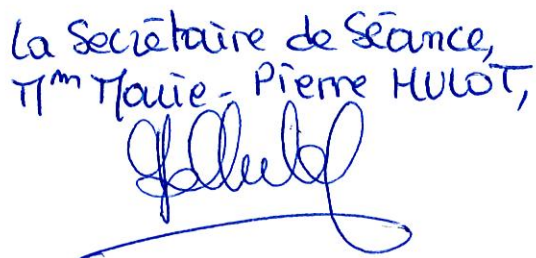 La Secrétaire de Séance,
Mm Marie-Pierre HULOT,